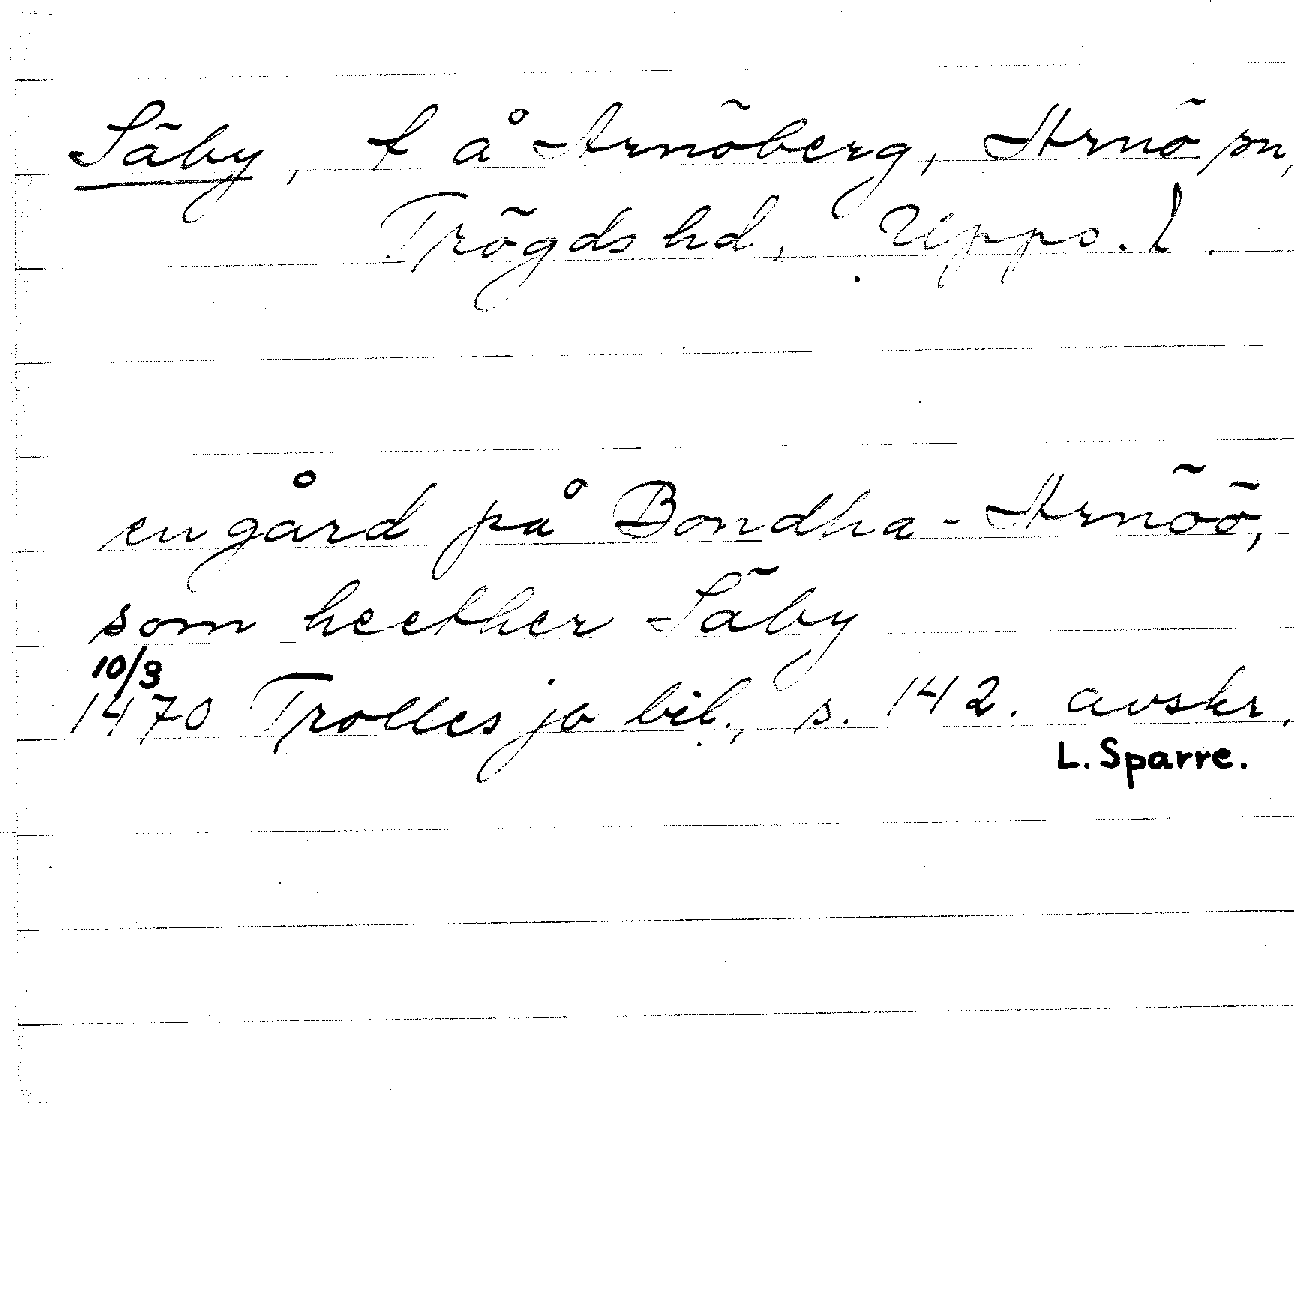 Säby, t å Arnöberg, Arnö sn,
Trögds hd, Upps. l.
en gård på Bondha-Arnöö,
som heether Säby
10/3
1470 Trolles jo bil., s. 142. avskr.
L. Sparre.